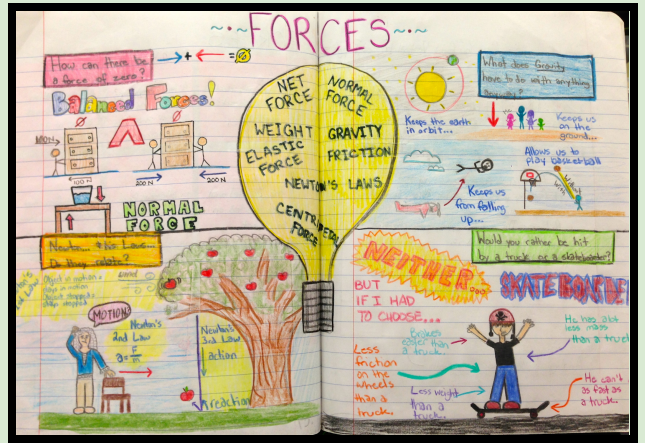 FORCES
How can there be
a force of zero?
+
=
Balanced Forces!
200 N
200 N
NORMAL
FORCE
NET
FORCE
NORMAL
FORCE
WEIGHT
GRAVITY
ELASTIC
FORCE
FRICTION
NEWTON'S LAWS
CENTRIPETAL
FORCE
What does Gravity
have to do with anything
Keeps the earth
in orbit...
Keeps us
on the
ground...
Allows us to
play basketball
Keeps us
from falling
up...
Newton... & his Laws...
Do they relate?
Object in motion
stays in motion
Object stopped
stays stopped
wind
MOTION!
Newton's
2nd Law
a=F/m
Newton's
3rd Law
action
reaction
Would you rather be hit
by a truck or a skateboarder?
NEITHER...
SKATEBOARDE
BUT
IF I HAD
TO CHOOSE...
Brakes
easier than
a truck.
He has a lot
less mass
than a truck
Less
friction
on the
wheels
than a
truck.
Less weight
than a
truck.
He can't
as fast as
a truck.